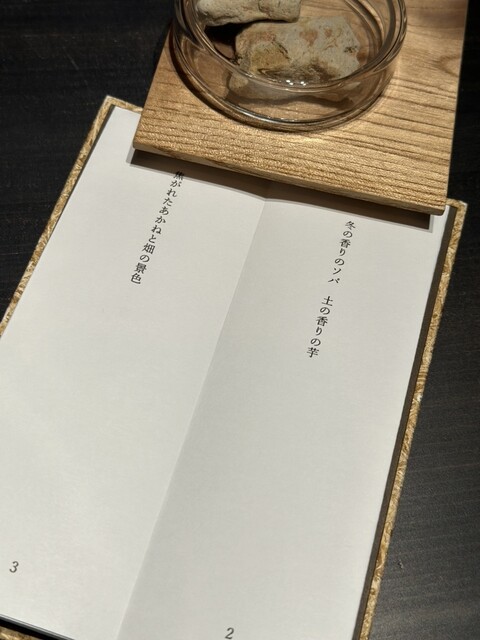 冬の香りのソバ　土の香りの芋
焦がれたあかねと畑の景色
2
3